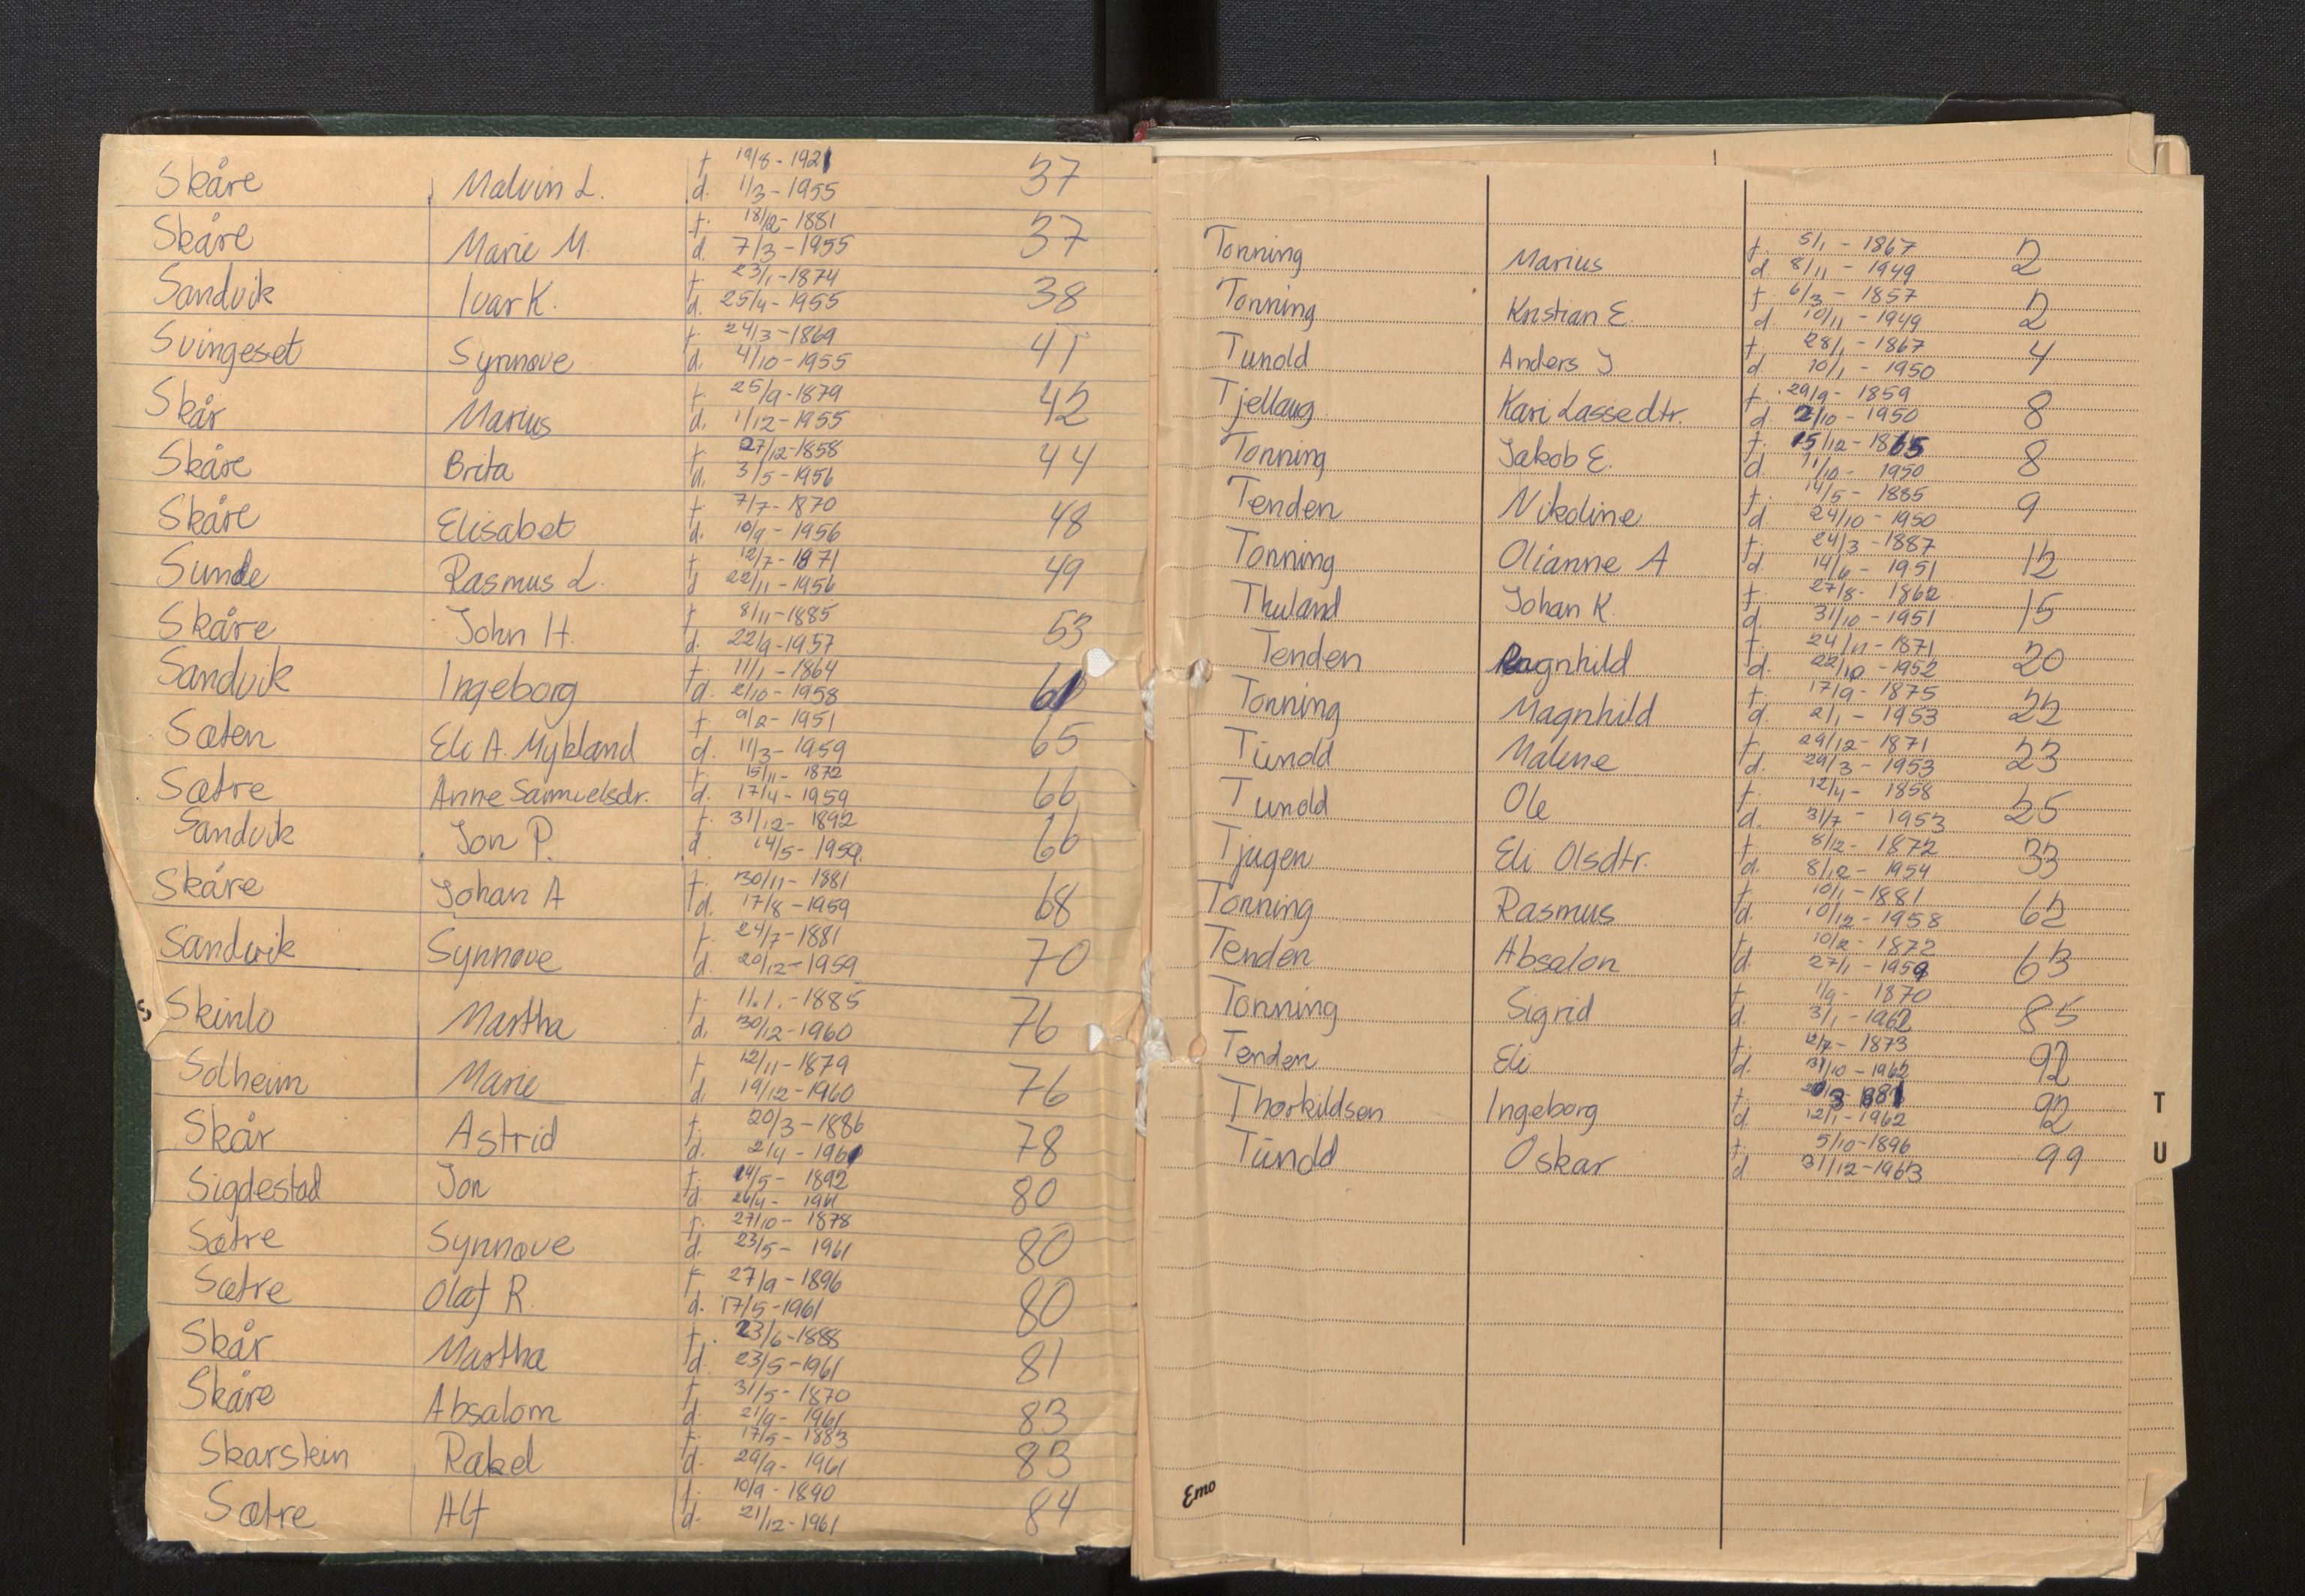 f. 19/8 - 1921
Skåre Malvin L. d. 1/3 - 1955 37
f. 18/12 - 1881
Skåre Marie M. d. 7/3 - 1955 37
f. 23/1 - 1874
Sandvik Ivar K. d. 25/4 - 1955 38
f. 24/3 - 1869
Svingeset Synnøve d. 4/10 - 1955 41
f. 25/9 - 1879
Skår Marius d. 1/12 - 1955 42
f. 27/12 - 1858
Skåre Brita d. 3/5 - 1956 44
f. 7/7 - 1870
Skåre Elisabet d. 10/9 - 1956 48
f. 12/7 - 1871
Sunde Rasmus L. d 22/11 - 1956 49
f 8/11 - 1885
Skåre John H. d. 22/9 - 1957 53
f. 11/1 - 1864
Sandvik Ingeborg d. 2/10 - 1958 61
f 9/2 - 1951
Sæten Eli A. Mykland d. 11/3 - 1959 65
f. 15/11 - 1872
Sætre Anne Samuelsdr. d. 17/4 - 1959 66
f. 31/12 - 1892
Sandvik Jon P. d. 14/5 - 1959. 66
f. 30/11 - 1881
Skåre Johan A d. 17/8 - 1959 68
f. 24/7 - 1881
Sandvik Synnøve d. 20/12 - 1959 70
f. 11.1. - 1885
S Skinlo Martha d. 30/12 - 1960 76
f 12/11 - 1879
Solheim Marie d. 19/12 - 1960 76
f. 20/3 - 1886
Skår Astrid d. 2/4 - 1961 78
f. 14/5 - 1892
Sigdestad Jon d. 26/4 - 1961 80
f. 27/10 - 1878
Sætre Synnøve d. 23/5 - 1961 80
f 27/9 - 1896
Sætre Olaf R. d. 17/5 - 1961 80
f. 23/6 - 1888
Skår Martha d 23/5 - 1961 81
f 31/5 - 1870
Skåre Absalom d. 21/9 - 1961 83
f. 17/5 - 1883
Skarstein Rakel d. 29/9 - 1961 83
f. 10/9 - 1890
Sætre Alf d. 21/12 - 1961 84
f. 5/1 - 1867
Tonning Marius d. 8/11 - 1949 2
f 6/3 - 1857
Tonning Kristian E. d. 10/11 - 1949 2
f. 28/1 - 1867
Tunold Anders J d 10/1 - 1950 4
f. 29/9 - 1859
Tjellaug Kari Lassedtr. d. 2/10 - 1950 8
f. 15/12 - 1865
Tonning Jakob E. d. 11/10 - 1950 8
f. 14/5 - 1885
Tenden Nikoline d 24/10 - 1950 9
f. 24/3 - 1887
Tonning Olianne A d. 14/6 - 1951 12
f. 27/8 - 1862
Thuland Johan K. d. 31/10 - 1951 15
f. 24/11 - 1871
Tenden Ragnhild d. 22/10 - 1952 20
f. 17/9 - 1875
Tonning Magnhild d. 2/1 - 1953 22
f. 29/12 - 1871
Tunold Malene d. 29/3 - 1953 23
f. 12/4 - 1858
Tunold Ole d. 31/7 - 1953 25
f 8/12 - 1872
Tjugen Eli Olsdtr. d. 8/12 - 1954 33
f 10/1 - 1881
Tonning Rasmus d. 10/12 - 1958 62
f. 10/2 - 1872
Tenden Absalon d. 27/1 - 1959 63
f. 1/9 - 1870
Tonning Sigrid d. 3/1 - 1962 85
f. 12/7 - 1873
Tenden Eli d. 31/10 - 1962 92
f. 3 1881
Thorkildsen Ingeborg d 12/1 - 1962 92
T
f. 5/10 - 1896
Tunold Oskar d 31/12 - 1963 99
U
Emo